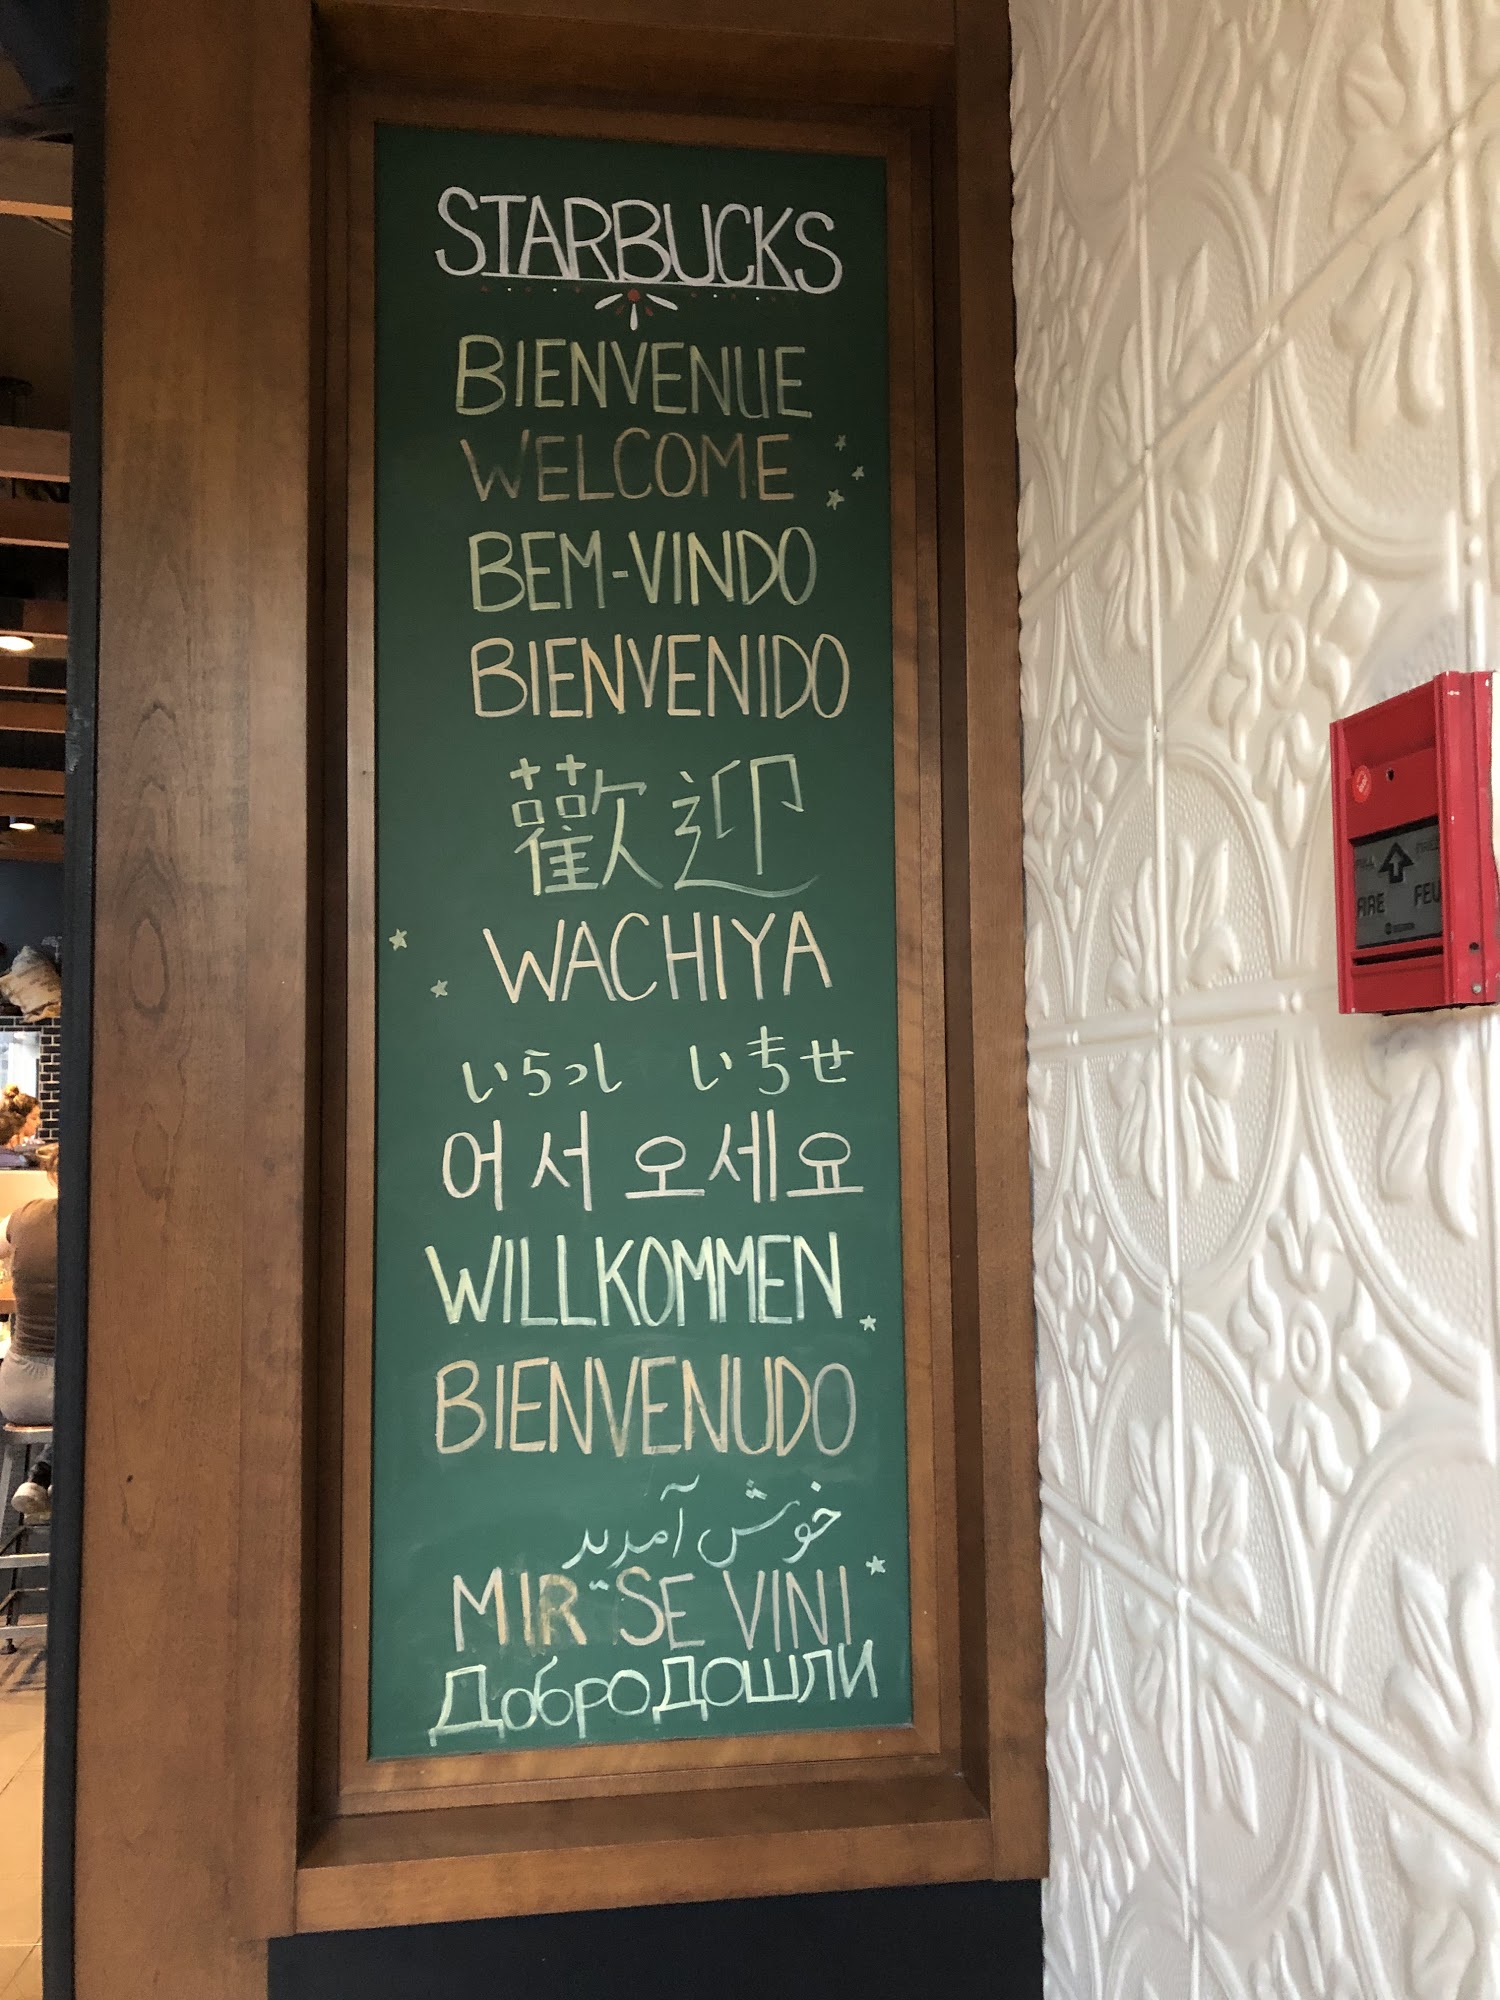 STARBUCKS
BIENVENUE
WELCOME
BEM-VINDO
BIENVENIDO
歡迎
WACHIYA
いらっし いませ
어서 오세요
WILLKOMMEN
BIENVENUDO
خوش آمدید
MIR SE VINI
Добро Дошли
PULL
FIRE FEU